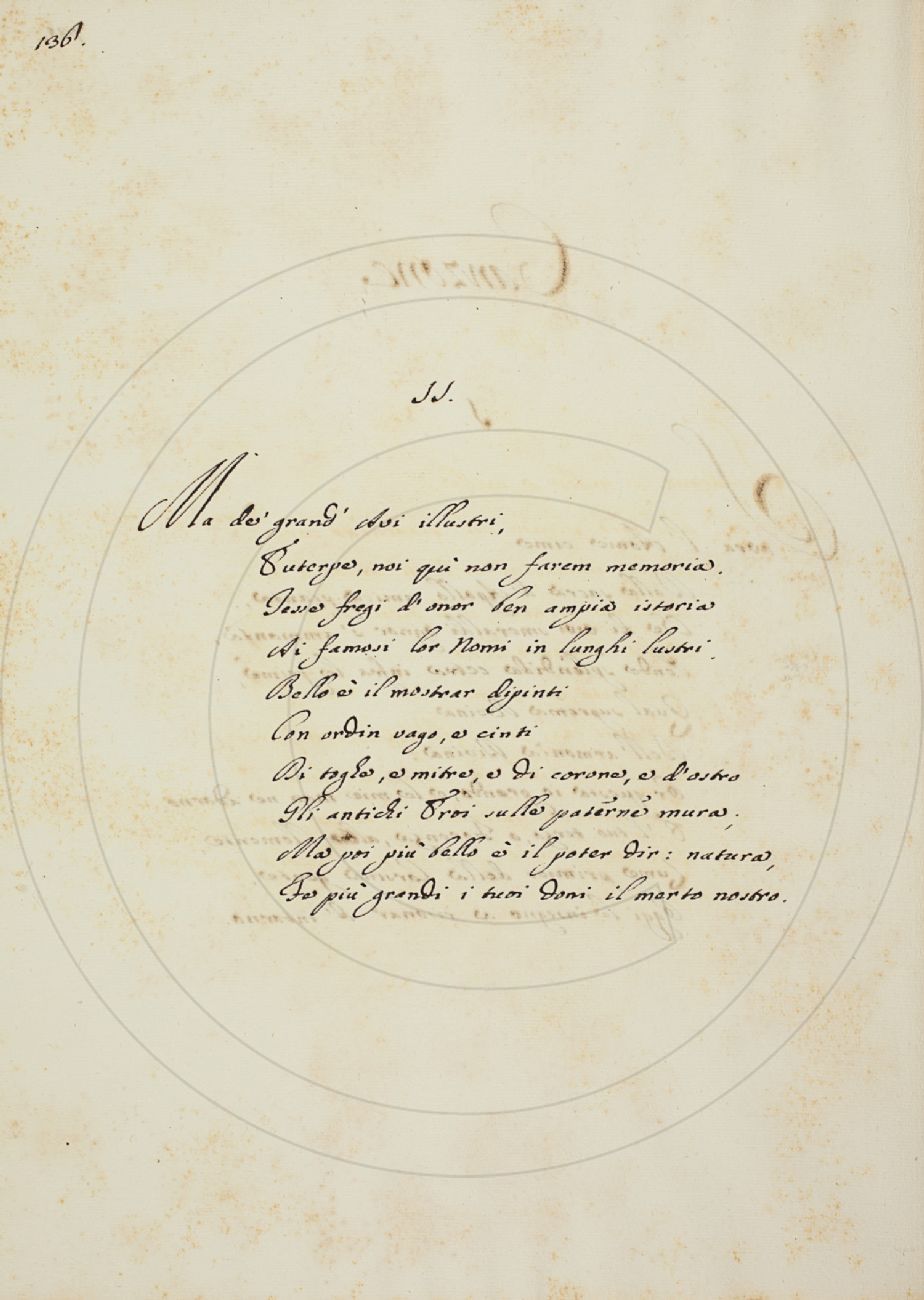 136.
II.
Ma de' grand' Avi illustri,
Euterpe, noi quì non farem memoria.
Tesse fregi d'onor ben ampia istoria
Ai famosi lor Nomi in lunghi lustri.
Bello è il mostrar dipinti
Con ordin vago, e cinti
Di toghe, e mitre, e di corone, e d'ostro
Gli antichi Eroi sulle paterne mura;
Ma poi più bello è il poter dir: natura,
Fe più grandi i tuoi doni il merto nostro.